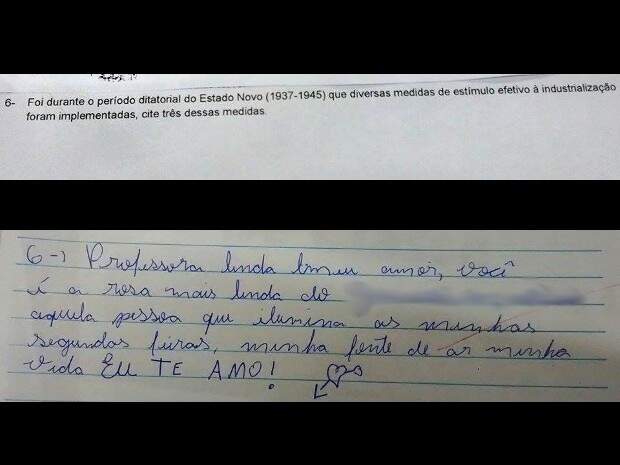 6- Foi durante o período ditatorial do Estado Novo (1937-1945) que diversas medidas de estímulo efetivo à industrialização
foram implementadas, cite três dessas medidas.
6-) Professora linda meu amor, você
é a rosa mais linda do
aquela pessoa que ilumina as minhas
segundas feiras, minha fonte de ar minha
vida EU TE AMO!